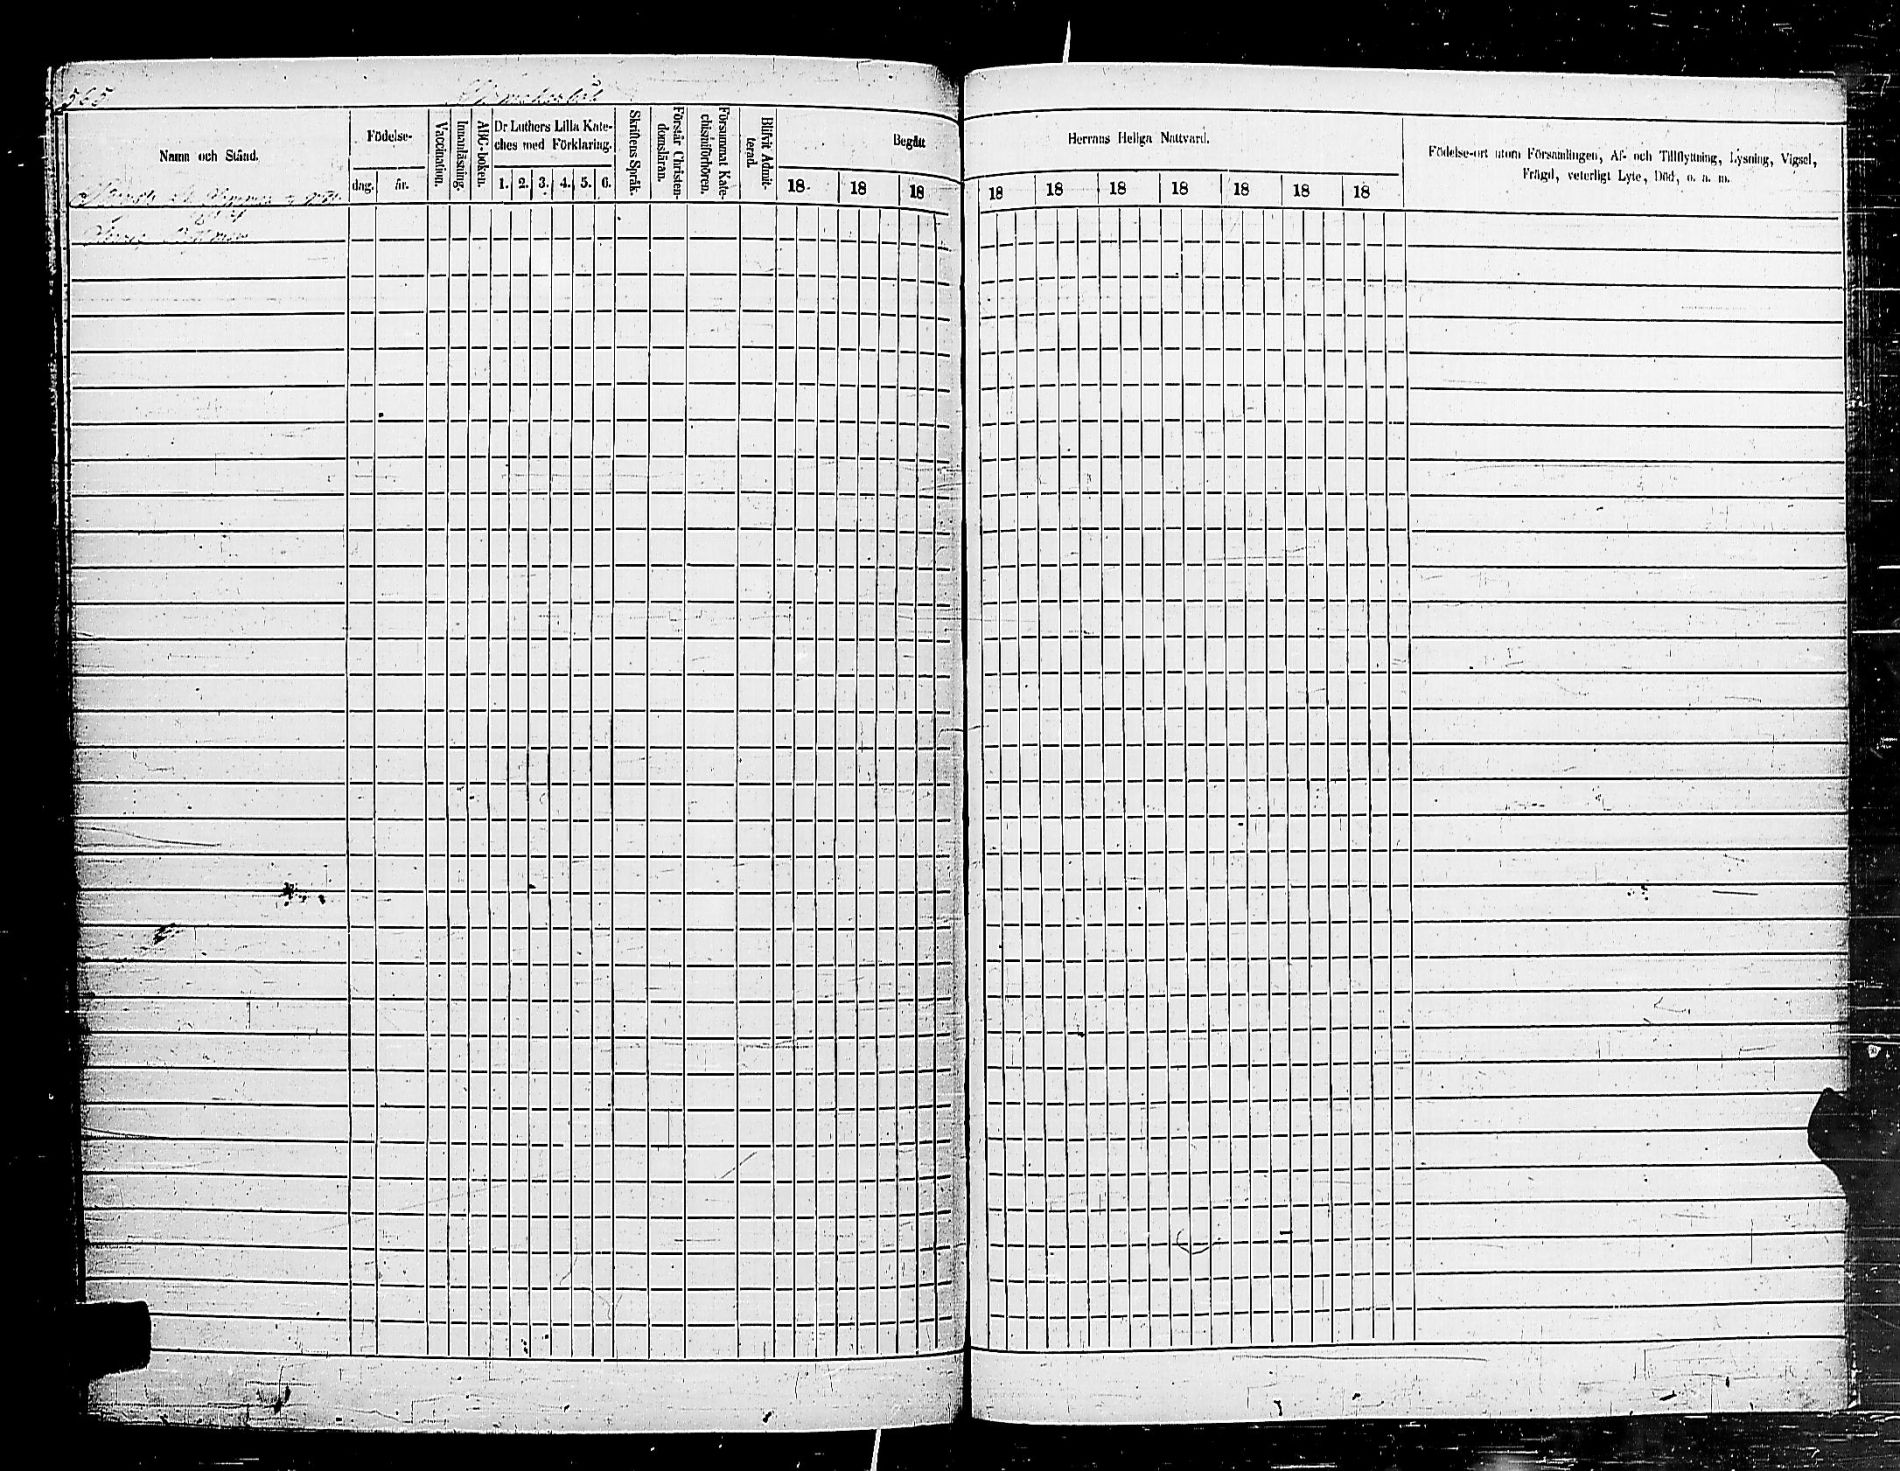 565
Namn och Stånd.
Födelse-
dag.
år.
Vaccination.
Innanläsning.
ABC-boken.
Dr Luthers Lilla Kate-
ches med Förklaring.
1. 2. 3. 4. 5. 6.
Skriftens Språk.
Förstår Christen-
domsläran.
Försummat Kate-
chismiförhören.
Blifvit Admit-
terad.
Begått
18 18 18
Herrans Heliga Nattvard.
18 18 18 18 18 18 18
Födelse-ort utom Församlingen, Af- och Tillflyttning, Lysning, Vigsel,
Frägd, veterligt Lyte, Död, o. s. m.